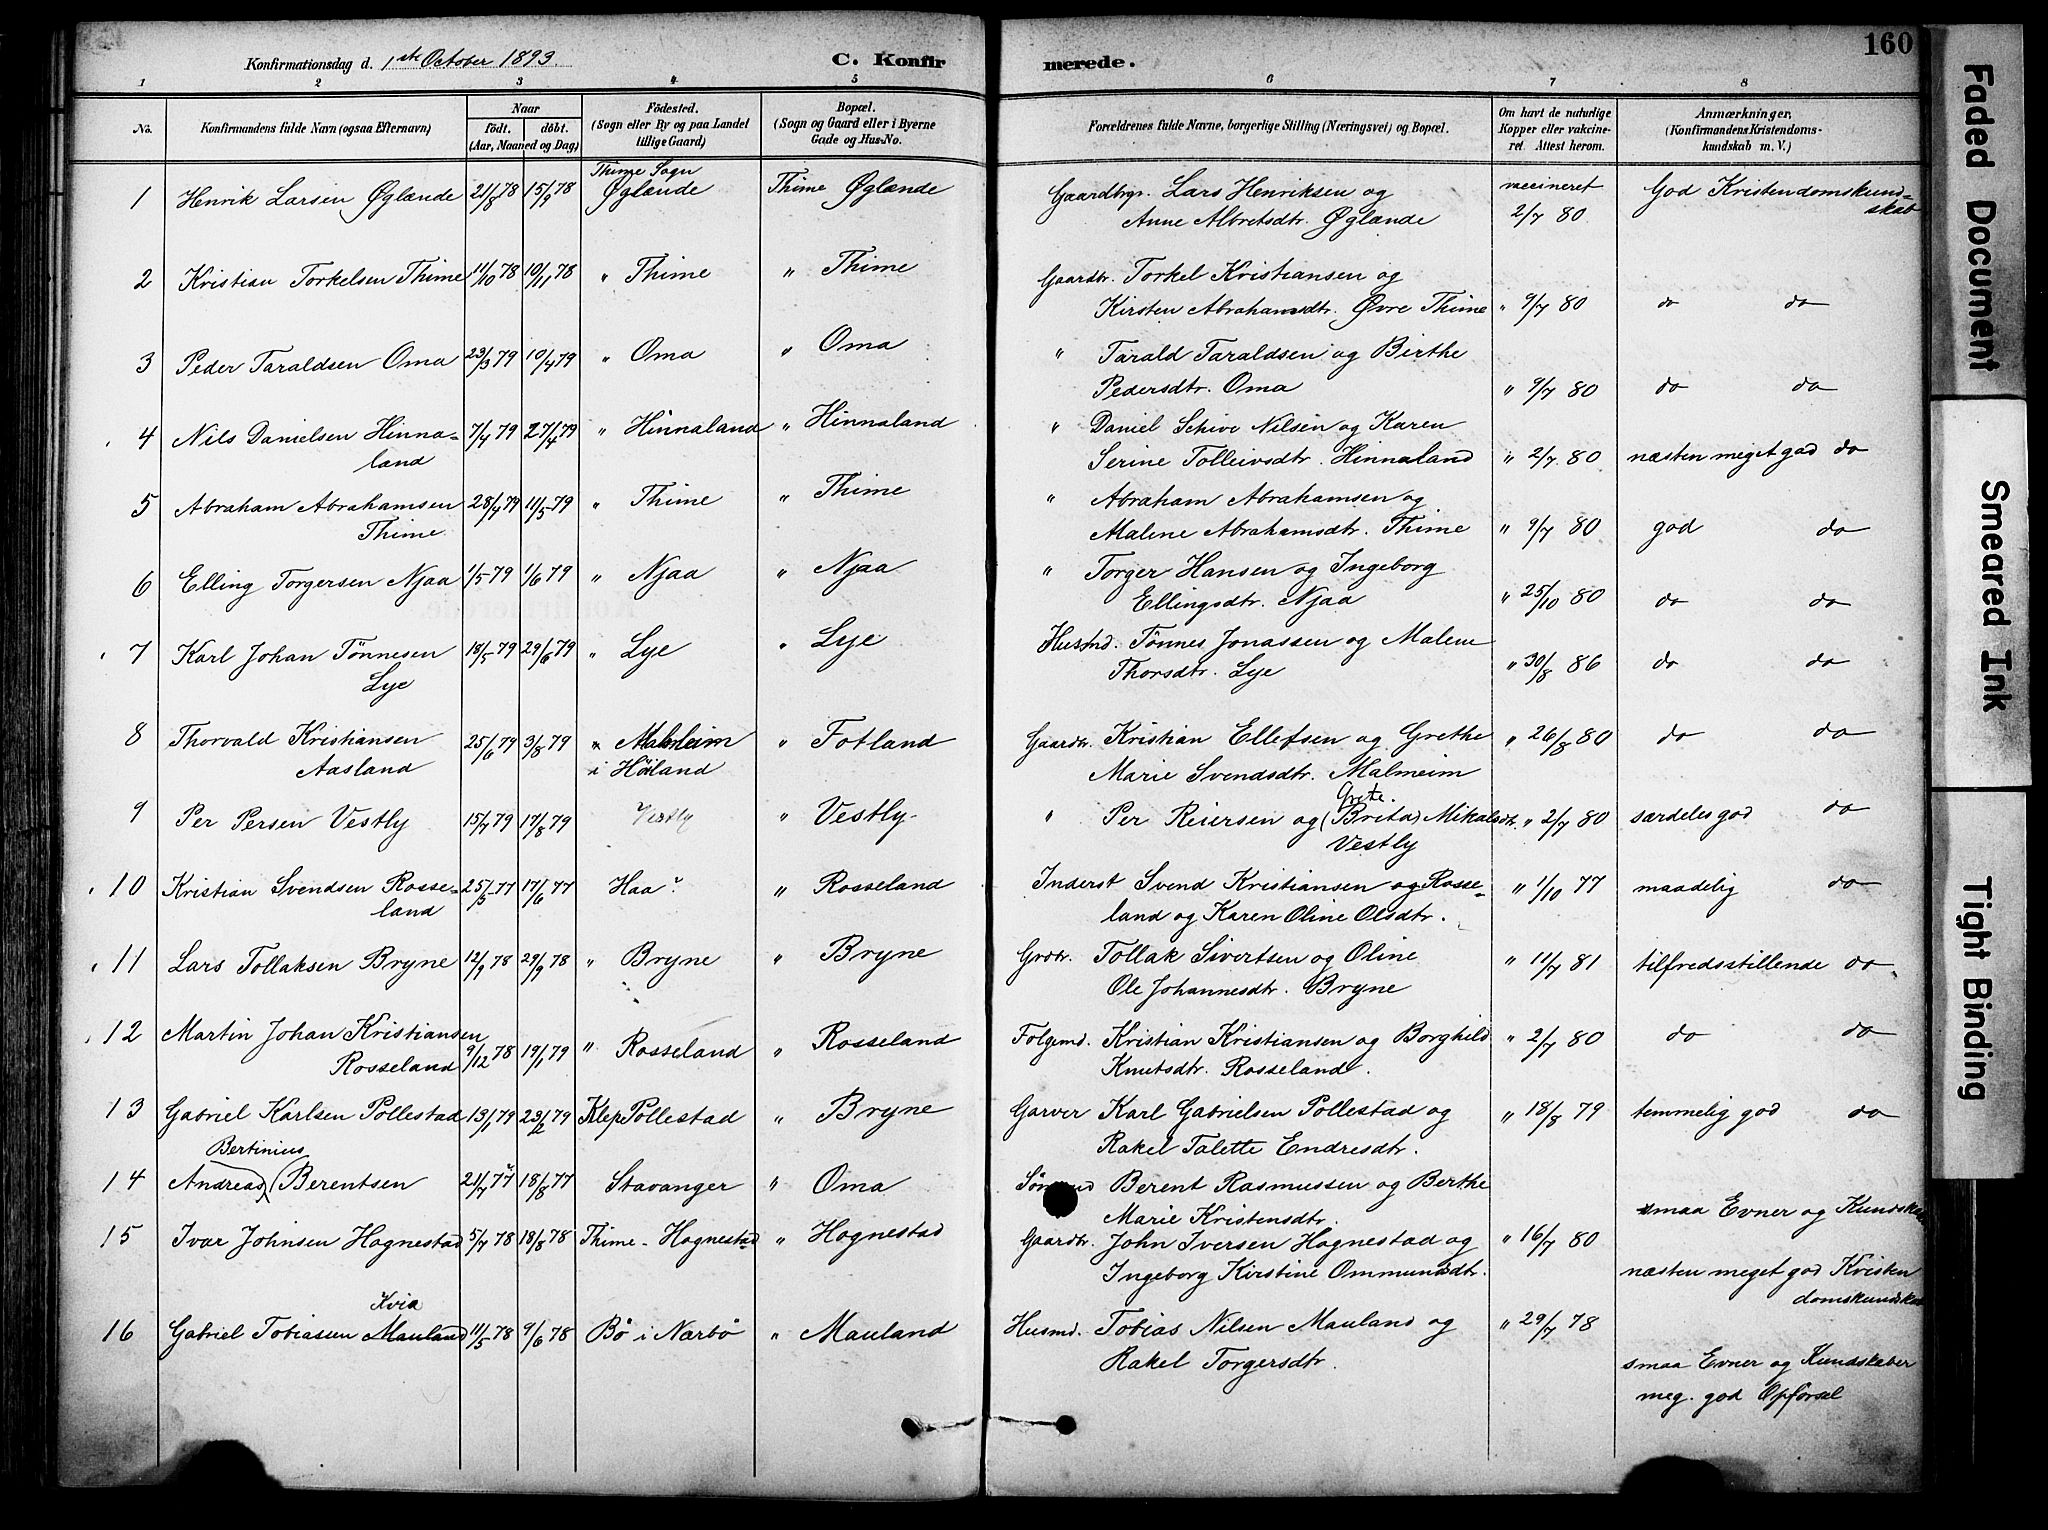 Konfirmationsdag d. 1ste October 1893. C. Konfirmerede. 160
1 2 3 4 5 6 7 8
No. Konfirmandens fulde Navn (ogsaa Efternavn) Naar født. døbt. (Aar, Maaned og Dag) Fødested. (Sogn eller By og paa Landet tillige Gaard) Bopæl. (Sogn og Gaard eller i Byerne Gade og Hus-No. Forældrenes fulde Navne, borgerlige Stilling (Næringsvei) og Bopæl. Om havt de naturlige Kopper eller vakcineret. Attest herom. Anmærkninger, (Konfirmandens Kristendomskundskab m. V.)
Thime Sogn
1 Henrik Larsen Øglænde 21/8 78 15/9 78 Øglænde Thime Øglænde Gaardbrgr. Lars Henriksen og vaccineret God Kristendomskund-
Anne Albretsdtr. Øglænde 2/7 80 skab
2 Kristian Torkelsen Thime 11/10 78 10/11 78 " Thime " Thime Gaardbr. Torkel Kristiansen og
Kirsten Abrahamsdtr. Øvre Thime " 9/7 80 do do
3 Peder Taraldsen Oma 23/3 79 10/4 79 " Oma " Oma " Tarald Taraldsen og Birthe
Pedersdtr. Oma " 9/7 80 do do
4 Nils Danielsen Hinna- 7/4 79 27/4 79 " Hinnaland " Hinnaland " Daniel Schive Nilsen og Karen
land Serine Tolleivsdtr. Hinnaland " 2/7 80 næsten meget god do
5 Abraham Abrahamsen 28/4 79 11/5 79 " Thime " Thime " Abraham Abrahamsen og
Thime Malene Abrahamsdtr. Thime " 9/7 80 god do
6 Elling Torgersen Njaa 1/5 79 1/6 79 " Njaa " Njaa " Torger Hansen og Ingeborg
Ellingsdtr. Njaa " 25/10 80 do do
7 Karl Johan Tønnesen 18/5 79 29/6 79 " Lye " Lye Husmd. Tønnes Jonassen og Malene
Lye Thorsdtr. Lye " 30/8 86 do do
8 Thorvald Kristiansen 25/6 79 3/8 79 Malmeim " Fotland Gaardbr. Kristian Ellefsen og Grethe " 26/8 80 do do
Aasland i Høiland Marie Svendsdtr. Malmeim
Grete.
9 Per Persen Vestly 15/7 79 17/8 79 Vestly " Vestly " Per Reiersen og (Brita) Mikalsdtr. " 2/7 80 særdeles god do
Vestly
10 Kristian Svendsen Rosse- 25/5 77 17/6 77 Haa? " Rosseland Inderst Svend Kristiansen og Rosse- " 1/10 77 maadelig do
land land og Karen Oline Olsdtr.
11 Lars Tollaksen Bryne 12/9 78 29/9 78 " Bryne " Bryne Grdbr. Tollak Sivertsen og Oline " 11/7 81 tilfredsstillende do
Ole Johannesdtr. Bryne
12 Martin Johan Kristiansen " Rosseland Folgemd. Kristian Kristiansen og Borghild " 2/7 80 do do
Rosseland 9/12 78 19/1 79 " Rosseland Knutsdtr. Rosseland.
13 Gabriel Karlsen Pollestad 13/1 79 23/2 79 Klep Pollestad " Bryne Garver Karl Gabrielsen Pollestad og " 18/8 79 temmelig god do
Rakel Talette Endresdtr.
Bertinius
14 Andreas (Berentsen 21/7 77 18/8 77 Stavanger " Oma Berent Rasmussen og Berthe
Marie Kristensdtr. smaa Evner og
15 Ivar Johnsen Hognestad 5/7 78 18/8 78 Thime - Hognestad " Hognestad Gaardbr. John Iversen Hognestad og " 16/7 80
Ingeborg Kirstine Ommundsdtr. næsten meget god Kristen
domskundskab
Kvia
16 Gabriel Tobiassen Mauland 11/5 78 9/6 78 Bø i Nærbø " Mauland Husmd. Tobias Nilsen Mauland og " 29/7 78
Rakel Torgersdtr. smaa Evner og Kundskaber
meg. god Opførsel
Faded Document
Smeared Ink
Tight Binding